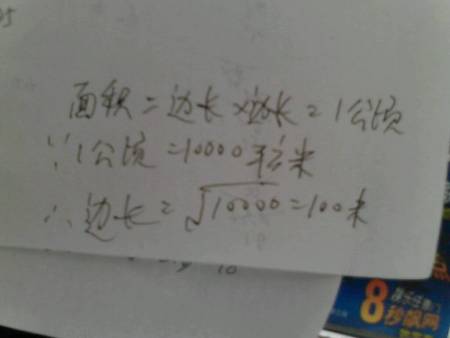 面积=边长×边长=1公顷
∵1公顷=10000平方米
∴边长=√10000=100米
8
秒飙网